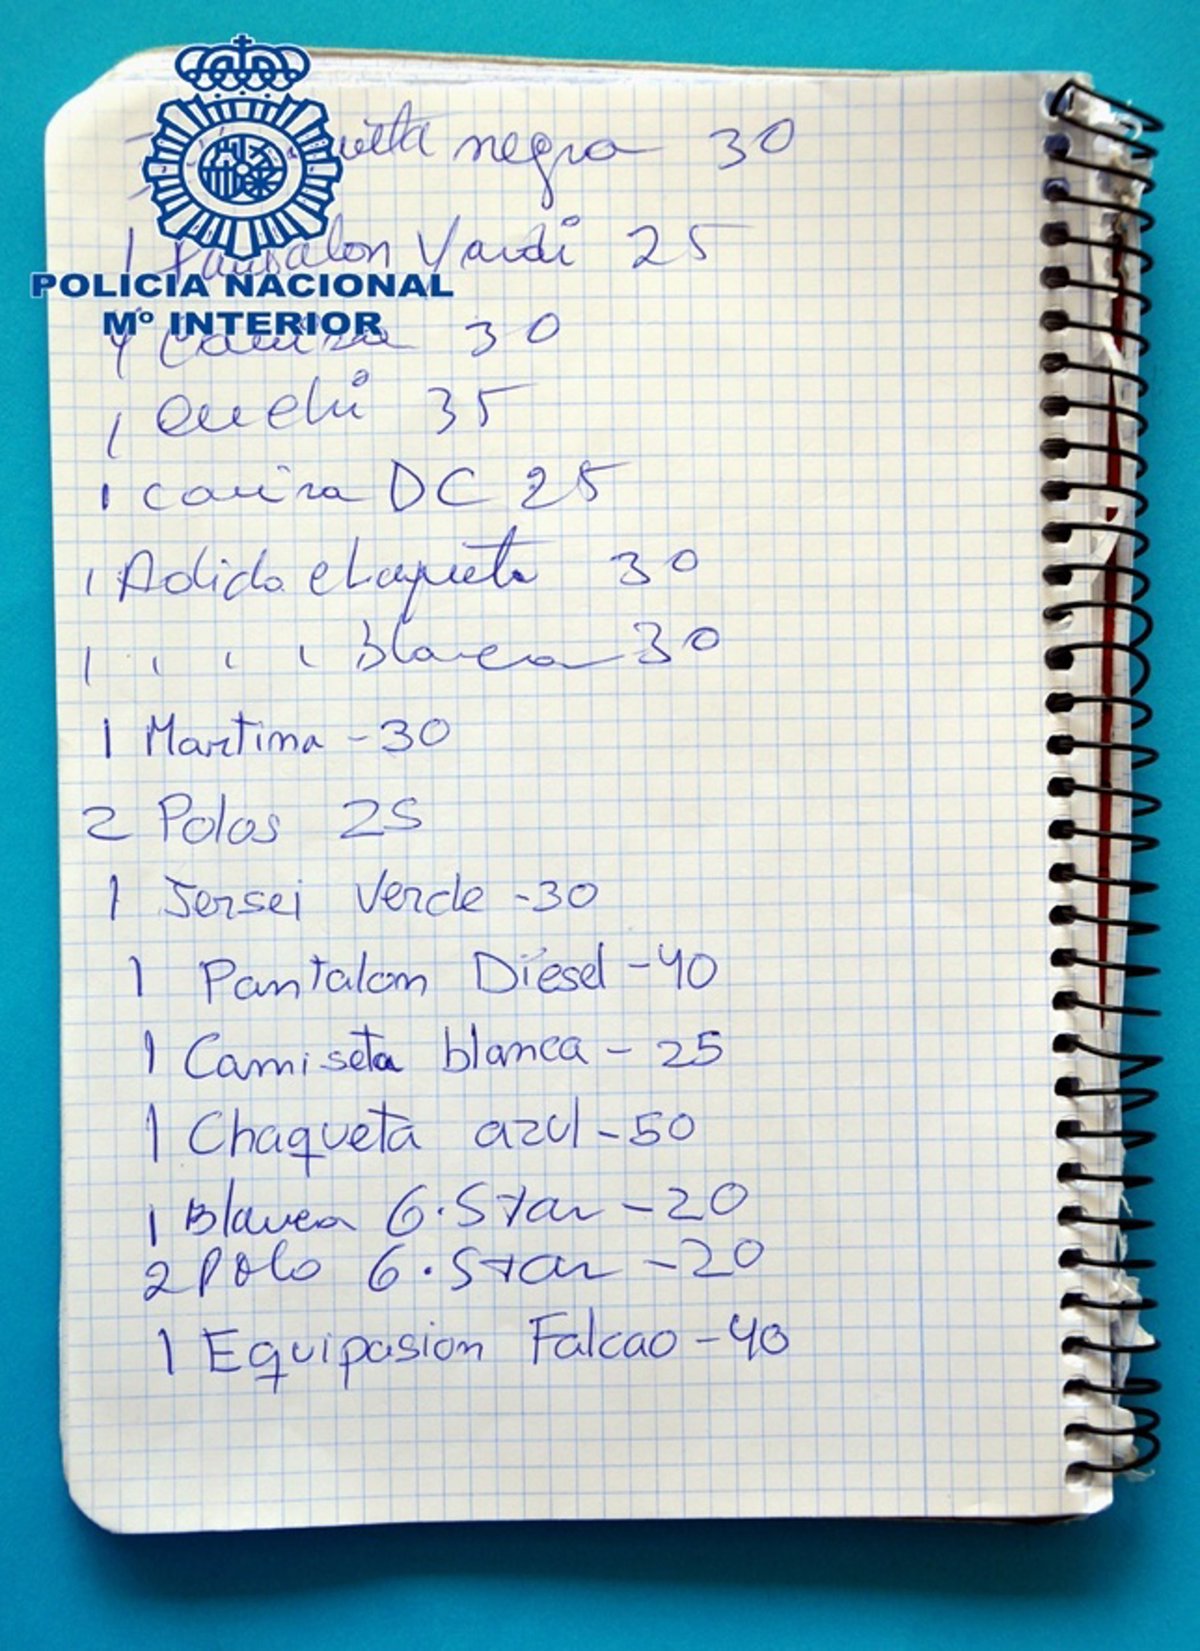 negra 30
POLICIA NACIONAL
Mº INTERIOR
1 Pantalon Vardi 25
camisa 30
1 35
1 camisa DC 25
1 Adida chaqueta 30
1 blanca 30
1 Martina - 30
2 Polos 25
1 Jersei Verde - 30
1 Pantalon Diesel - 40
1 Camiseta blanca - 25
1 Chaqueta azul - 50
1 Blanca G. Star - 20
2 Polo G. Star - 20
1 Equipasion Falcao - 40